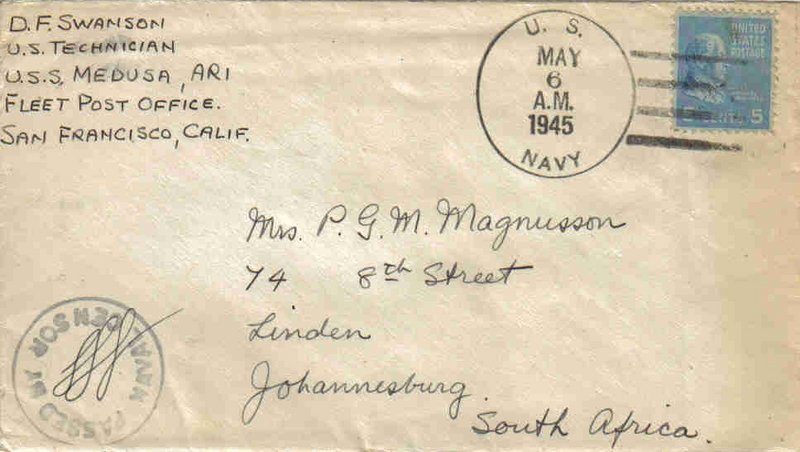 D. F. SWANSON
U.S. TECHNICIAN
U.S.S. MEDUSA, AR1
FLEET POST OFFICE.
SAN FRANCISCO, CALIF.
U. S.
MAY
6
A.M.
1945
NAVY
UNITED
STATES
POSTAGE
5
Mrs. P. G. M. Magnusson
74 8th Street
Linden
Johannesburg.
South Africa.
PASSED BY
NAVAL CENSOR